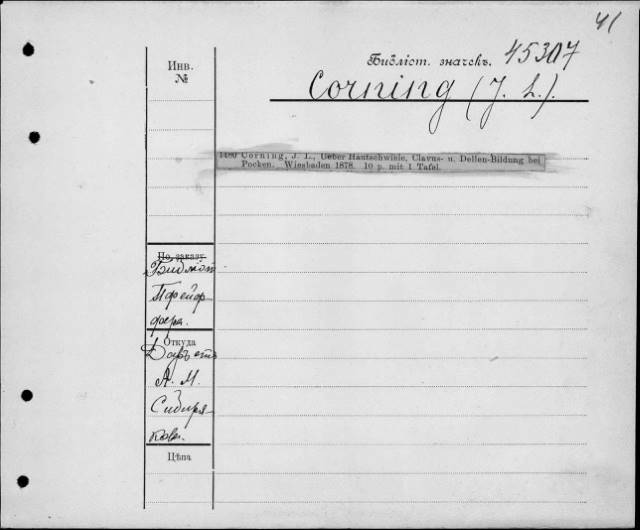 41
Библіот. значекъ. 45307
Corning (J. L.).
Инв.
№
1480 Corning, J. L., Ueber Hautschwiele, Clavus- u. Dellen-Bildung bei
Pocken. Wiesbaden 1878. 10 p. mit 1 Tafel.
По заказу
Библіот.
Пфейф-
фера.
Откуда
Даръ отъ
А. М.
Сибиря-
кова.
Цѣна